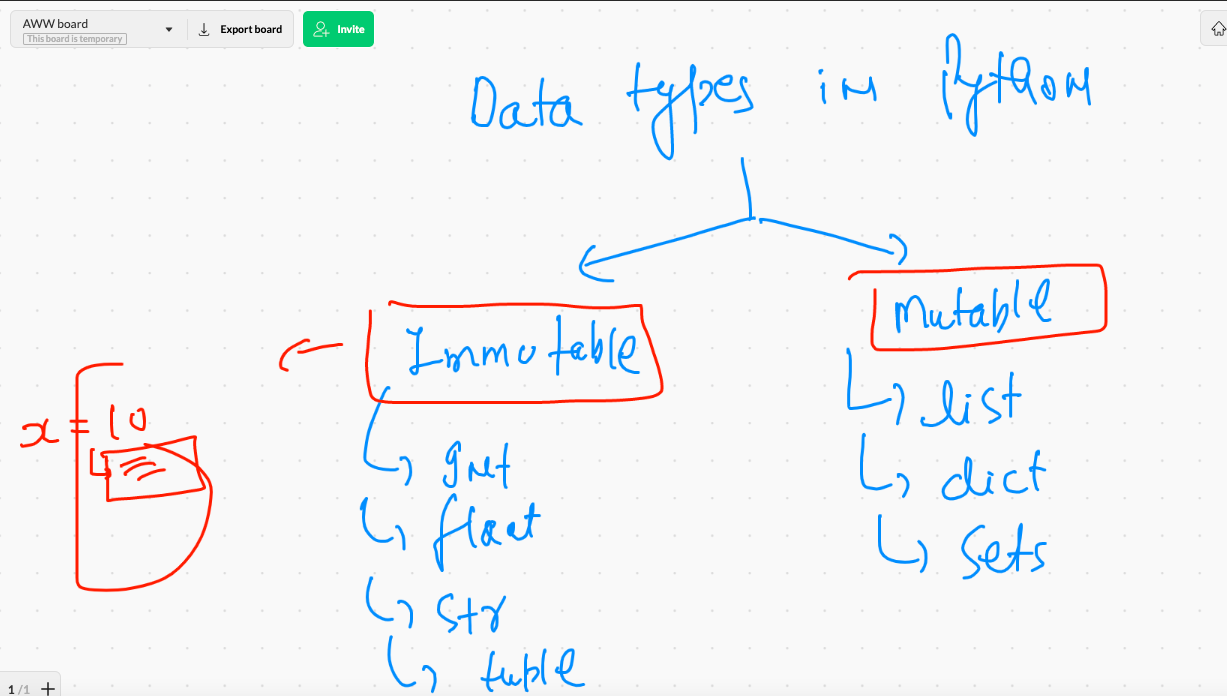 AWW board
This board is temporary
Export board
Invite
Data types in Python
Immutable
Mutable
x = 10
int
float
str
tuple
list
dict
sets
1 / 1 +